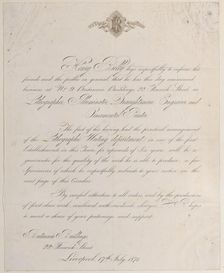 Henry Kelly begs respectfully to inform his
friends and the public in general that he has this day commenced
business at No 9 Brunswick Buildings, 22 Fenwick Street as
Lithographer, Illuminator, Draughtsman, Engraver and
Ornamental Printer
The fact of his having had the practical management
of the Lithographic Writing department in one of the first
Establishments in this Town for upwards of Six years will be a
guarantee for the quality of the work he is able to produce, a few
Specimens of which he respectfully submits to your notice on the
next page of this Circular
By careful attention to all orders, and by the production
of first class work combined with moderate charges, hopes
to merit a share of your patronage and support
Buildings
22 Fenwick Street
Liverpool 17th July 1876